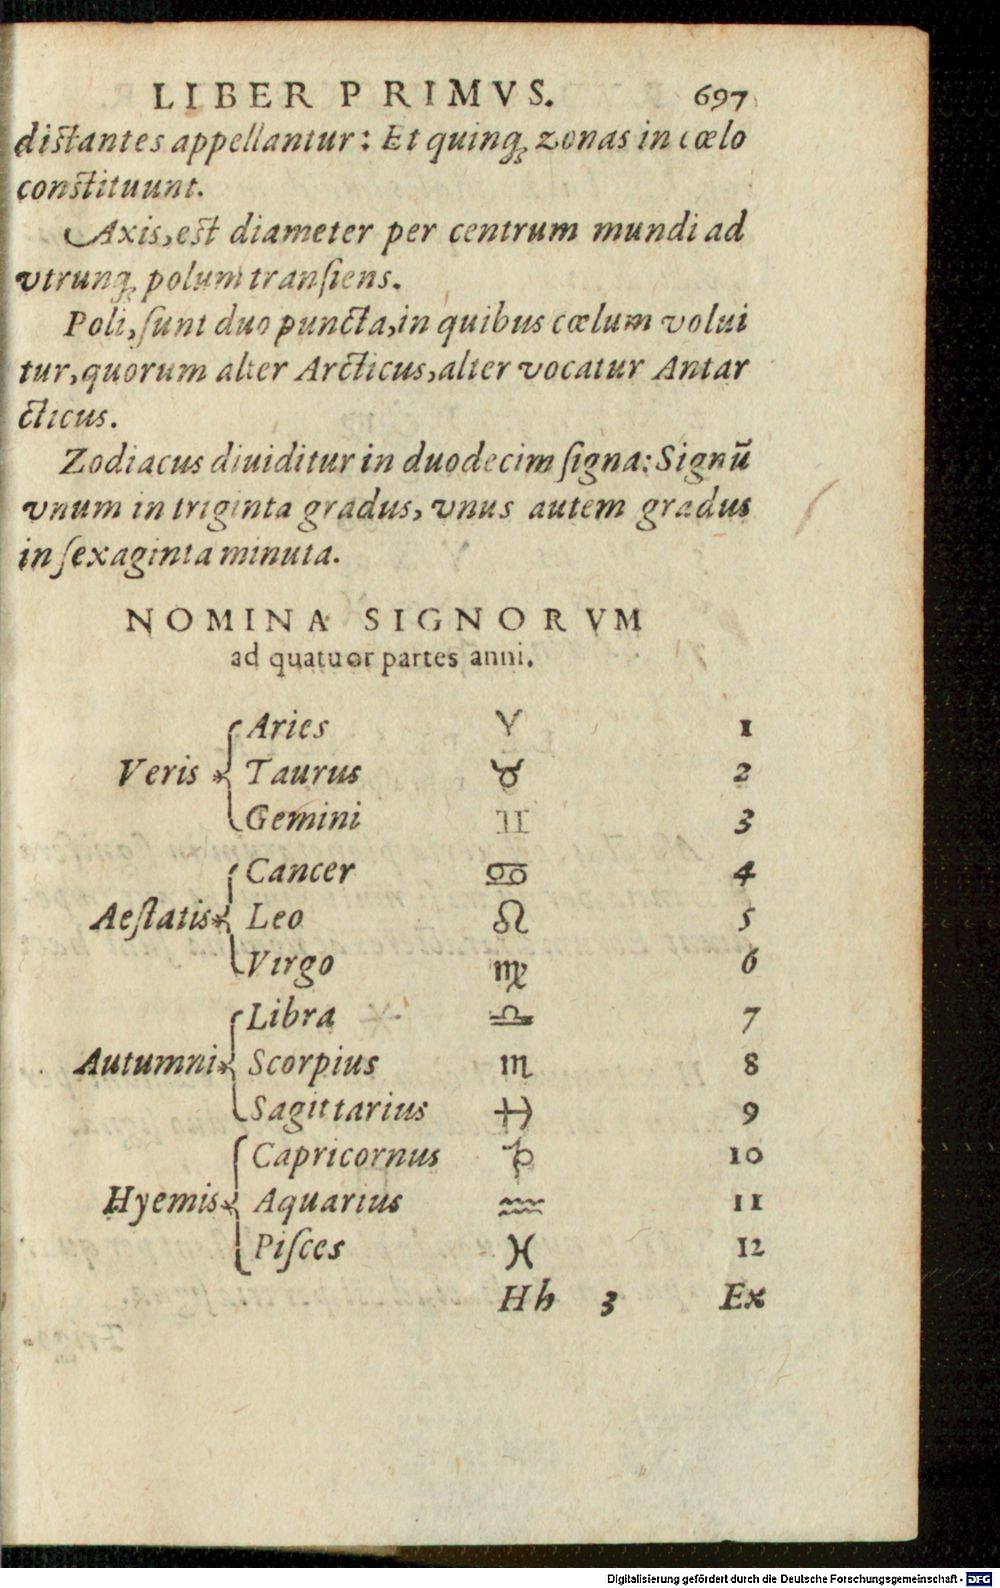 LIBER PRIMVS. 697
distantes appellantur: Et quinq; zonas in cœlo
constituunt.
Axis, est diameter per centrum mundi ad
vtrunq; polum transiens.
Poli, ſunt duo puncta, in quibus cœlum volui
tur, quorum alter Arcticus, alter vocatur Antar
cticus.
Zodiacus diuiditur in duodecim ſigna: Signū
vnum in triginta gradus, vnus autem gradus
in ſexaginta minuta.
NOMINA SIGNORVM
ad quatuor partes anni.
Aries ♈ 1
Veris Taurus ♉ 2
Gemini ♊ 3
Cancer ♋ 4
Aeſtatis Leo ♌ 5
Virgo ♍ 6
Libra ♎ 7
Autumni Scorpius ♏ 8
Sagittarius ♐ 9
Capricornus ♑ 10
Hyemis Aquarius ♒ 11
Piſces ♓ 12
Hh 3 Ex
Digitalisierung gefördert durch die Deutsche Forschungsgemeinschaft - DFG